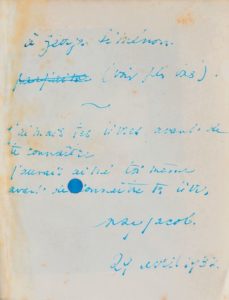 à Georges Siménon
parfaitn (voir plus bas).
j'aimais tes livres avant de
te connaître
j'aurais aimé toi même
avant de connaître tes livres.
Max Jacob.
29 avril 1932